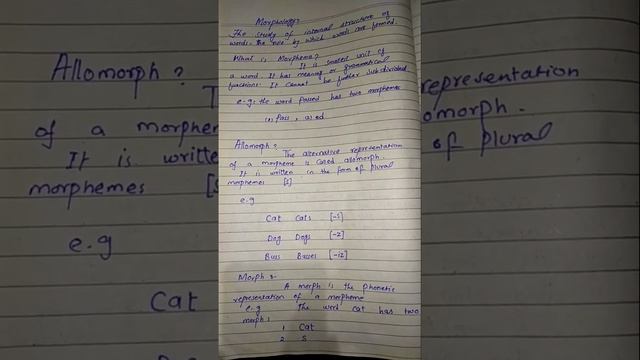 Morphology?
The study of internal structure of
words. the rule by which words are formed.
What is Morpheme?
It is smallest unit of
a word. It has meaning or grammatical
function. It cannot be further subdivided.
e.g: the word passed has two morphemes
(1) Pass, (2) ed
Allomorph?
The alternative representation
of a morpheme is called allomorph.
It is written in the form of plural
morphemes [s]
e.g
Cat Cats [-s]
Dog Dogs [-z]
Buss Busses [-iz]
Morph :-
A morph is the phonetic
representation of a morpheme
e.g The word cat has two
morph:
1 Cat
2 S
Allomorph?
T
of a morphem
It is written
morphemes [s
e.g
Cat
representation
omorph.
of plural